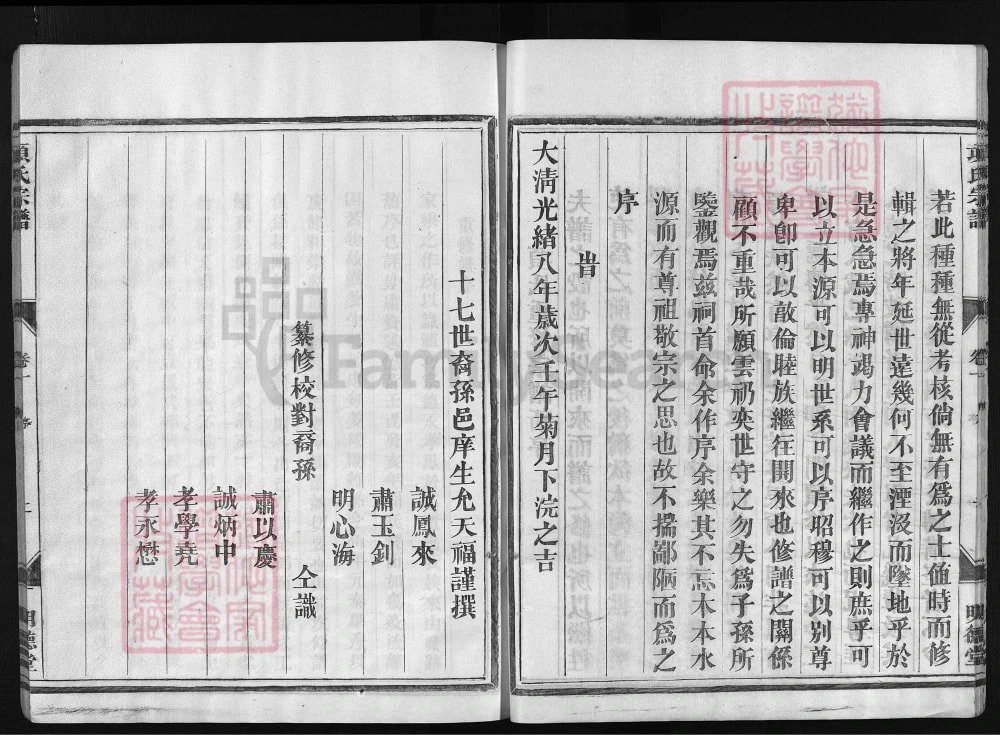 若此種種無從考核倘無有爲之士值時而修
輯之將年延世遠幾何不至湮沒而墜地乎於
是急急焉專神竭力會議而繼作之則庶乎可
以立本源可以明世系可以序昭穆可以別尊
卑卽可以敦倫睦族繼往開來也修譜之關係
顧不重哉所願雲礽奕世守之勿失爲子孫所
鑒觀焉兹祠首命余作序余樂其不忘木本水
源而有尊祖敬宗之思也故不揣鄙陋而爲之
序
旹
大清光緒八年歲次壬午菊月下浣之吉
十七世裔孫邑庠生允天福謹撰
誠鳳來
肅玉釗
明心海
纂修校對裔孫
肅以慶
仝識
誠炳中
孝學堯
孝永懋
項氏宗譜
卷一
明德堂
FamilySearch